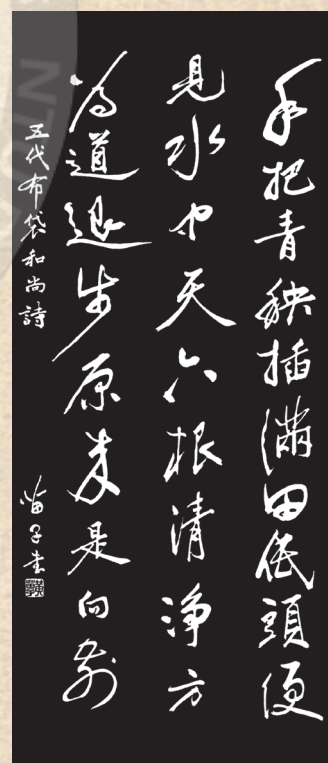 手把青秧插滿田低頭便
見水中天六根清淨方
為道退步原來是向前
五代布袋和尚詩
苗子書